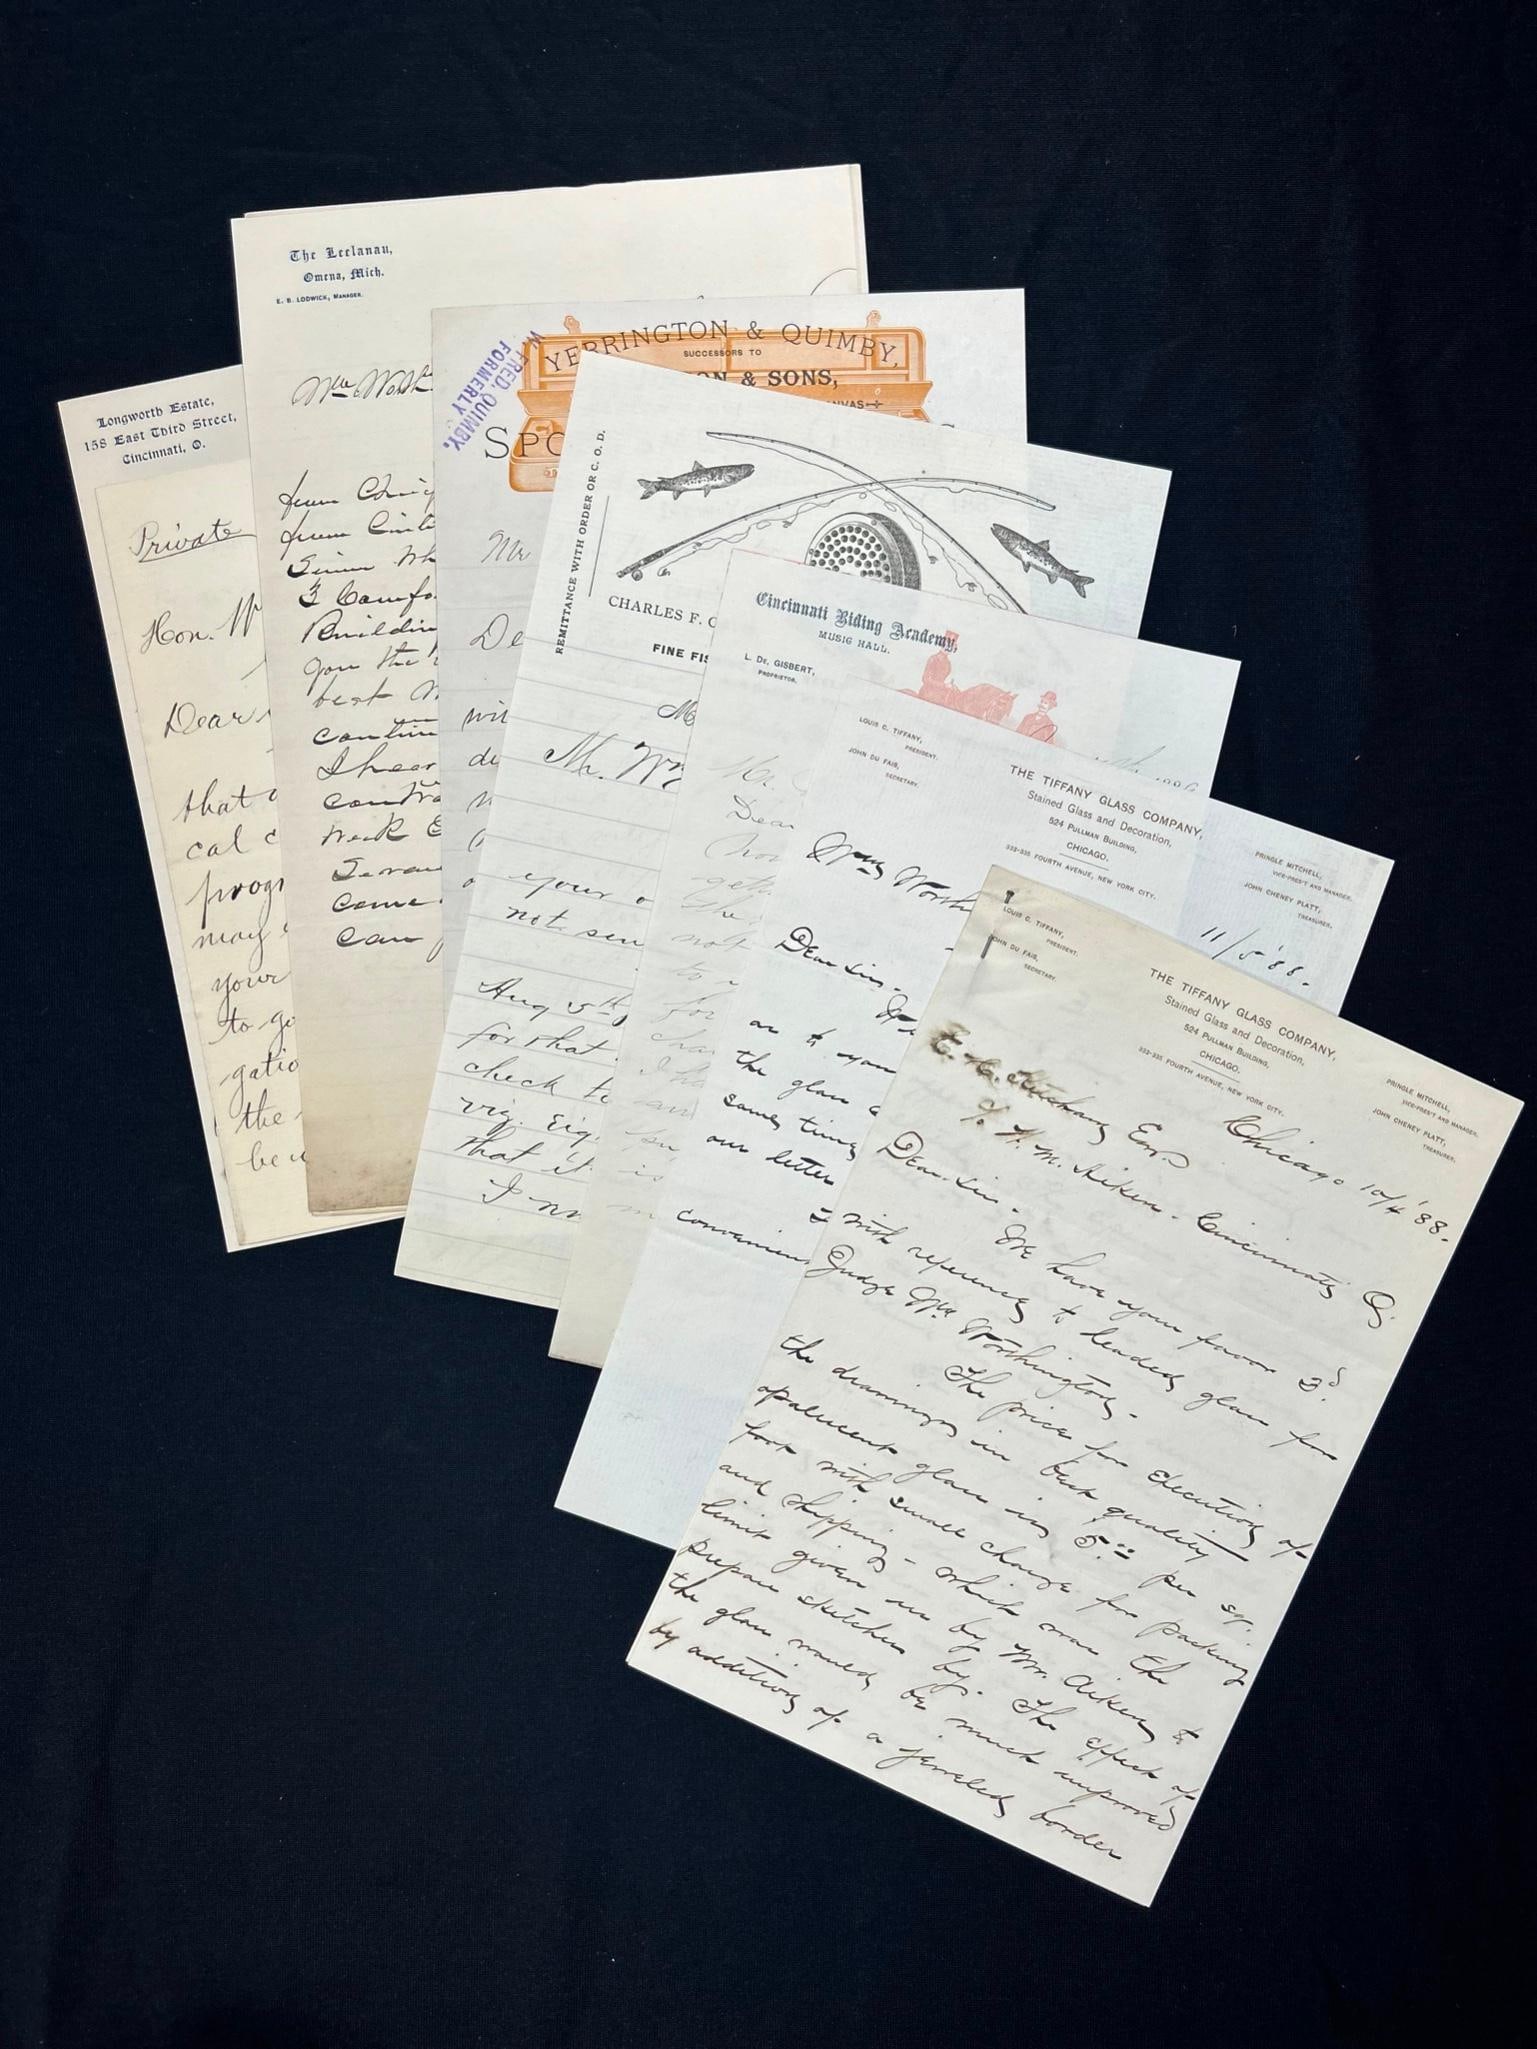 Longworth Estate,
158 East Third Street,
Cincinnati, O.
Private
Hon. W
Dear
that
cal c
progr
may
your
to go
gatio
the
be u
The Leelanau,
Omena, Mich.
E. B. LODWICK, MANAGER.
Wm Worth
from
from Cinti
3 Comfo
Buildin
you the
best
I hear
contra
week
can
YERRINGTON & QUIMBY,
SUCCESSORS TO
ON & SONS,
CANVAS
W. FRED. QUIMBY.
FORMERLY
SPO
Mr
De
REMITTANCE WITH ORDER OR C. O. D.
CHARLES F. O
FINE FIS
Mr. W
your o
not sen
Aug 5th
for that
check to
viz. Eig
that it is
I no
Cincinnati Riding Academy,
MUSIC HALL.
L. DE. GISBERT,
PROPRIETOR.
Dear
LOUIS C. TIFFANY,
PRESIDENT.
JOHN DU FAIS,
SECRETARY.
THE TIFFANY GLASS COMPANY,
Stained Glass and Decoration,
524 PULLMAN BUILDING,
CHICAGO.
333-335 FOURTH AVENUE, NEW YORK CITY.
PRINGLE MITCHELL,
VICE-PRES'T AND MANAGER.
JOHN CHENEY PLATT,
TREASURER.
11/5'88.
Wm Worth
Dear Sir.
as to your
the glass
same time
our letter
convenien
LOUIS C. TIFFANY,
PRESIDENT.
JOHN DU FAIS,
SECRETARY.
THE TIFFANY GLASS COMPANY,
Stained Glass and Decoration,
524 PULLMAN BUILDING,
CHICAGO.
333-335 FOURTH AVENUE, NEW YORK CITY.
PRINGLE MITCHELL,
VICE-PRES'T AND MANAGER.
JOHN CHENEY PLATT,
TREASURER.
Chicago 10/4'88.
Esq.
c/o H. M. Aiken - Cincinnati O.
Dear Sir.
We have your favor 3d
with reference to leaded glass for
Judge Wm Worthington.
The price for execution of
the drawings in best quality
opalescent glass is 5.00 per sq.
foot with small charge for packing
and shipping - which was the
limit given us by Mr. Aiken to
prepare sketches by. The effect of
the glass would be much improved
by addition of a jeweled border